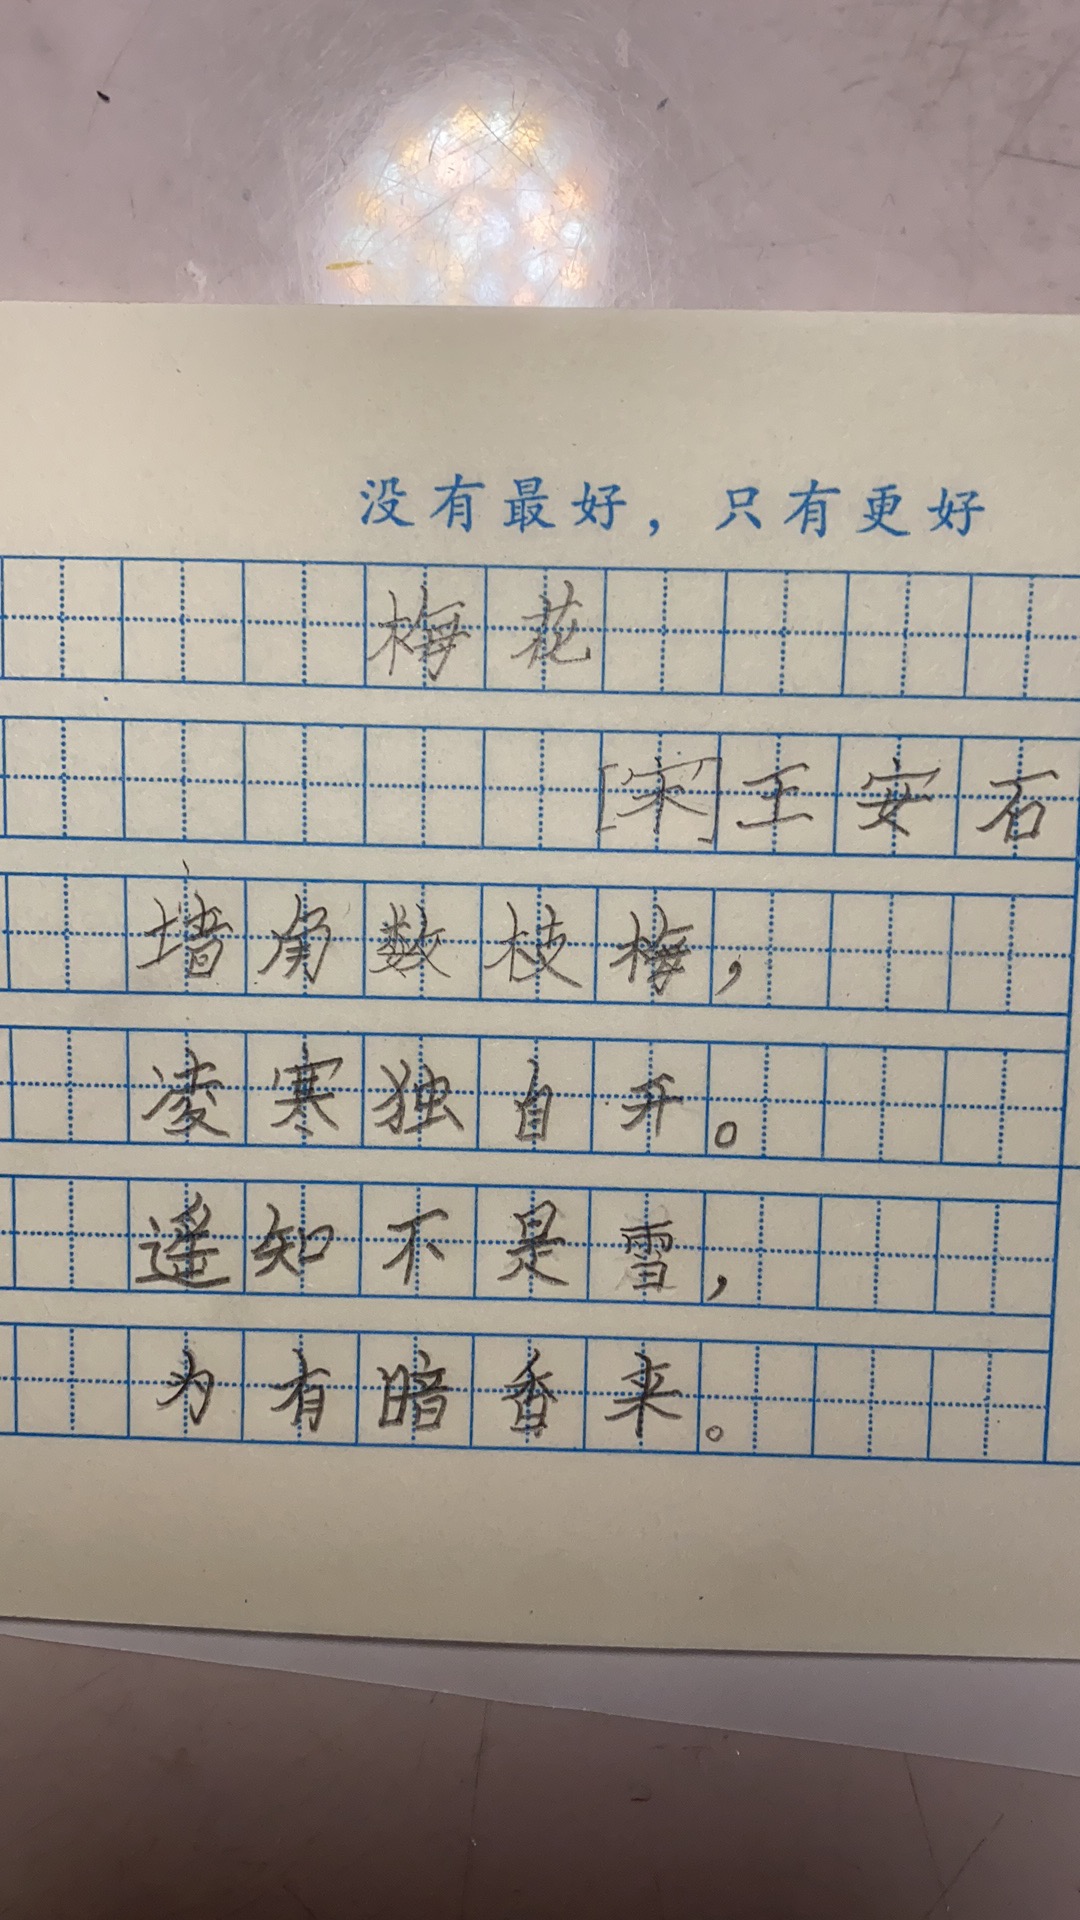 没有最好，只有更好
梅花
[宋]王安石
墙角数枝梅，
凌寒独自开。
遥知不是雪，
为有暗香来。